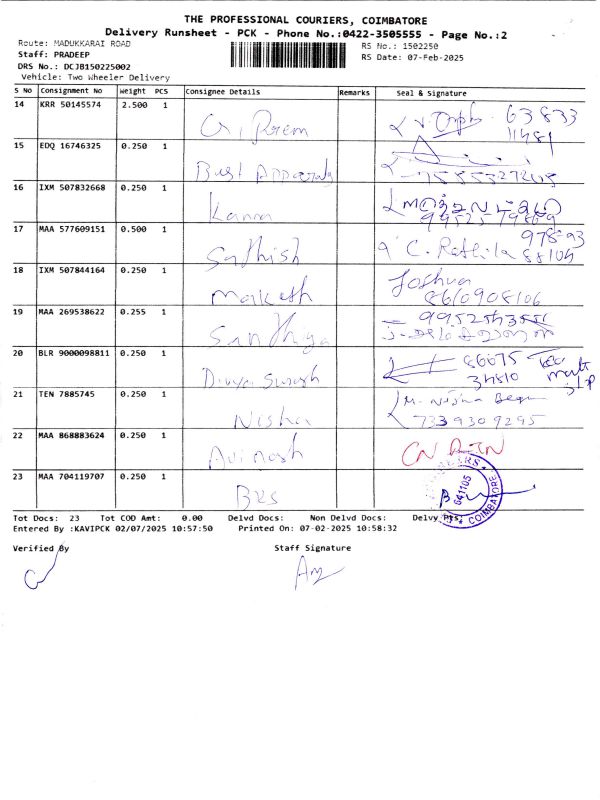 THE PROFESSIONAL COURIERS, COIMBATORE
Delivery Runsheet - PCK - Phone No.:0422-3505555 - Page No.:2
Route: MADUKKARAI ROAD
RS No.: 1502250
Staff: PRADEEP
RS Date: 07-Feb-2025
DRS No.: DCJB150225002
Vehicle: Two Wheeler Delivery
S No Consignment No Weight PCS Consignee Details Remarks Seal & Signature
14 KRR 50145574 2.500 1 Prem 63833
11481
15 EDQ 16746325 0.250 1 Best
16 IXM 507832668 0.250 1 Kanna
17 MAA 577609151 0.500 1 Sathish C. 97893
88104
18 IXM 507844164 0.250 1 Joshua
8660908106
19 MAA 269538622 0.255 1 Sandhiya
20 BLR 9000098811 0.250 1 Divya Suresh 86675
34810
21 TEN 7885745 0.250 1 Nisha M. Nisha Begum
7339309295
22 MAA 868883624 0.250 1 Avinash
23 MAA 704119707 0.250 1 641105 COIMBATORE
Tot Docs: 23 Tot COD Amt: 0.00 Delvd Docs: Non Delvd Docs: Delvy Pts:
Entered By :KAVIPCK 02/07/2025 10:57:50 Printed On: 07-02-2025 10:58:32
Verified By Staff Signature